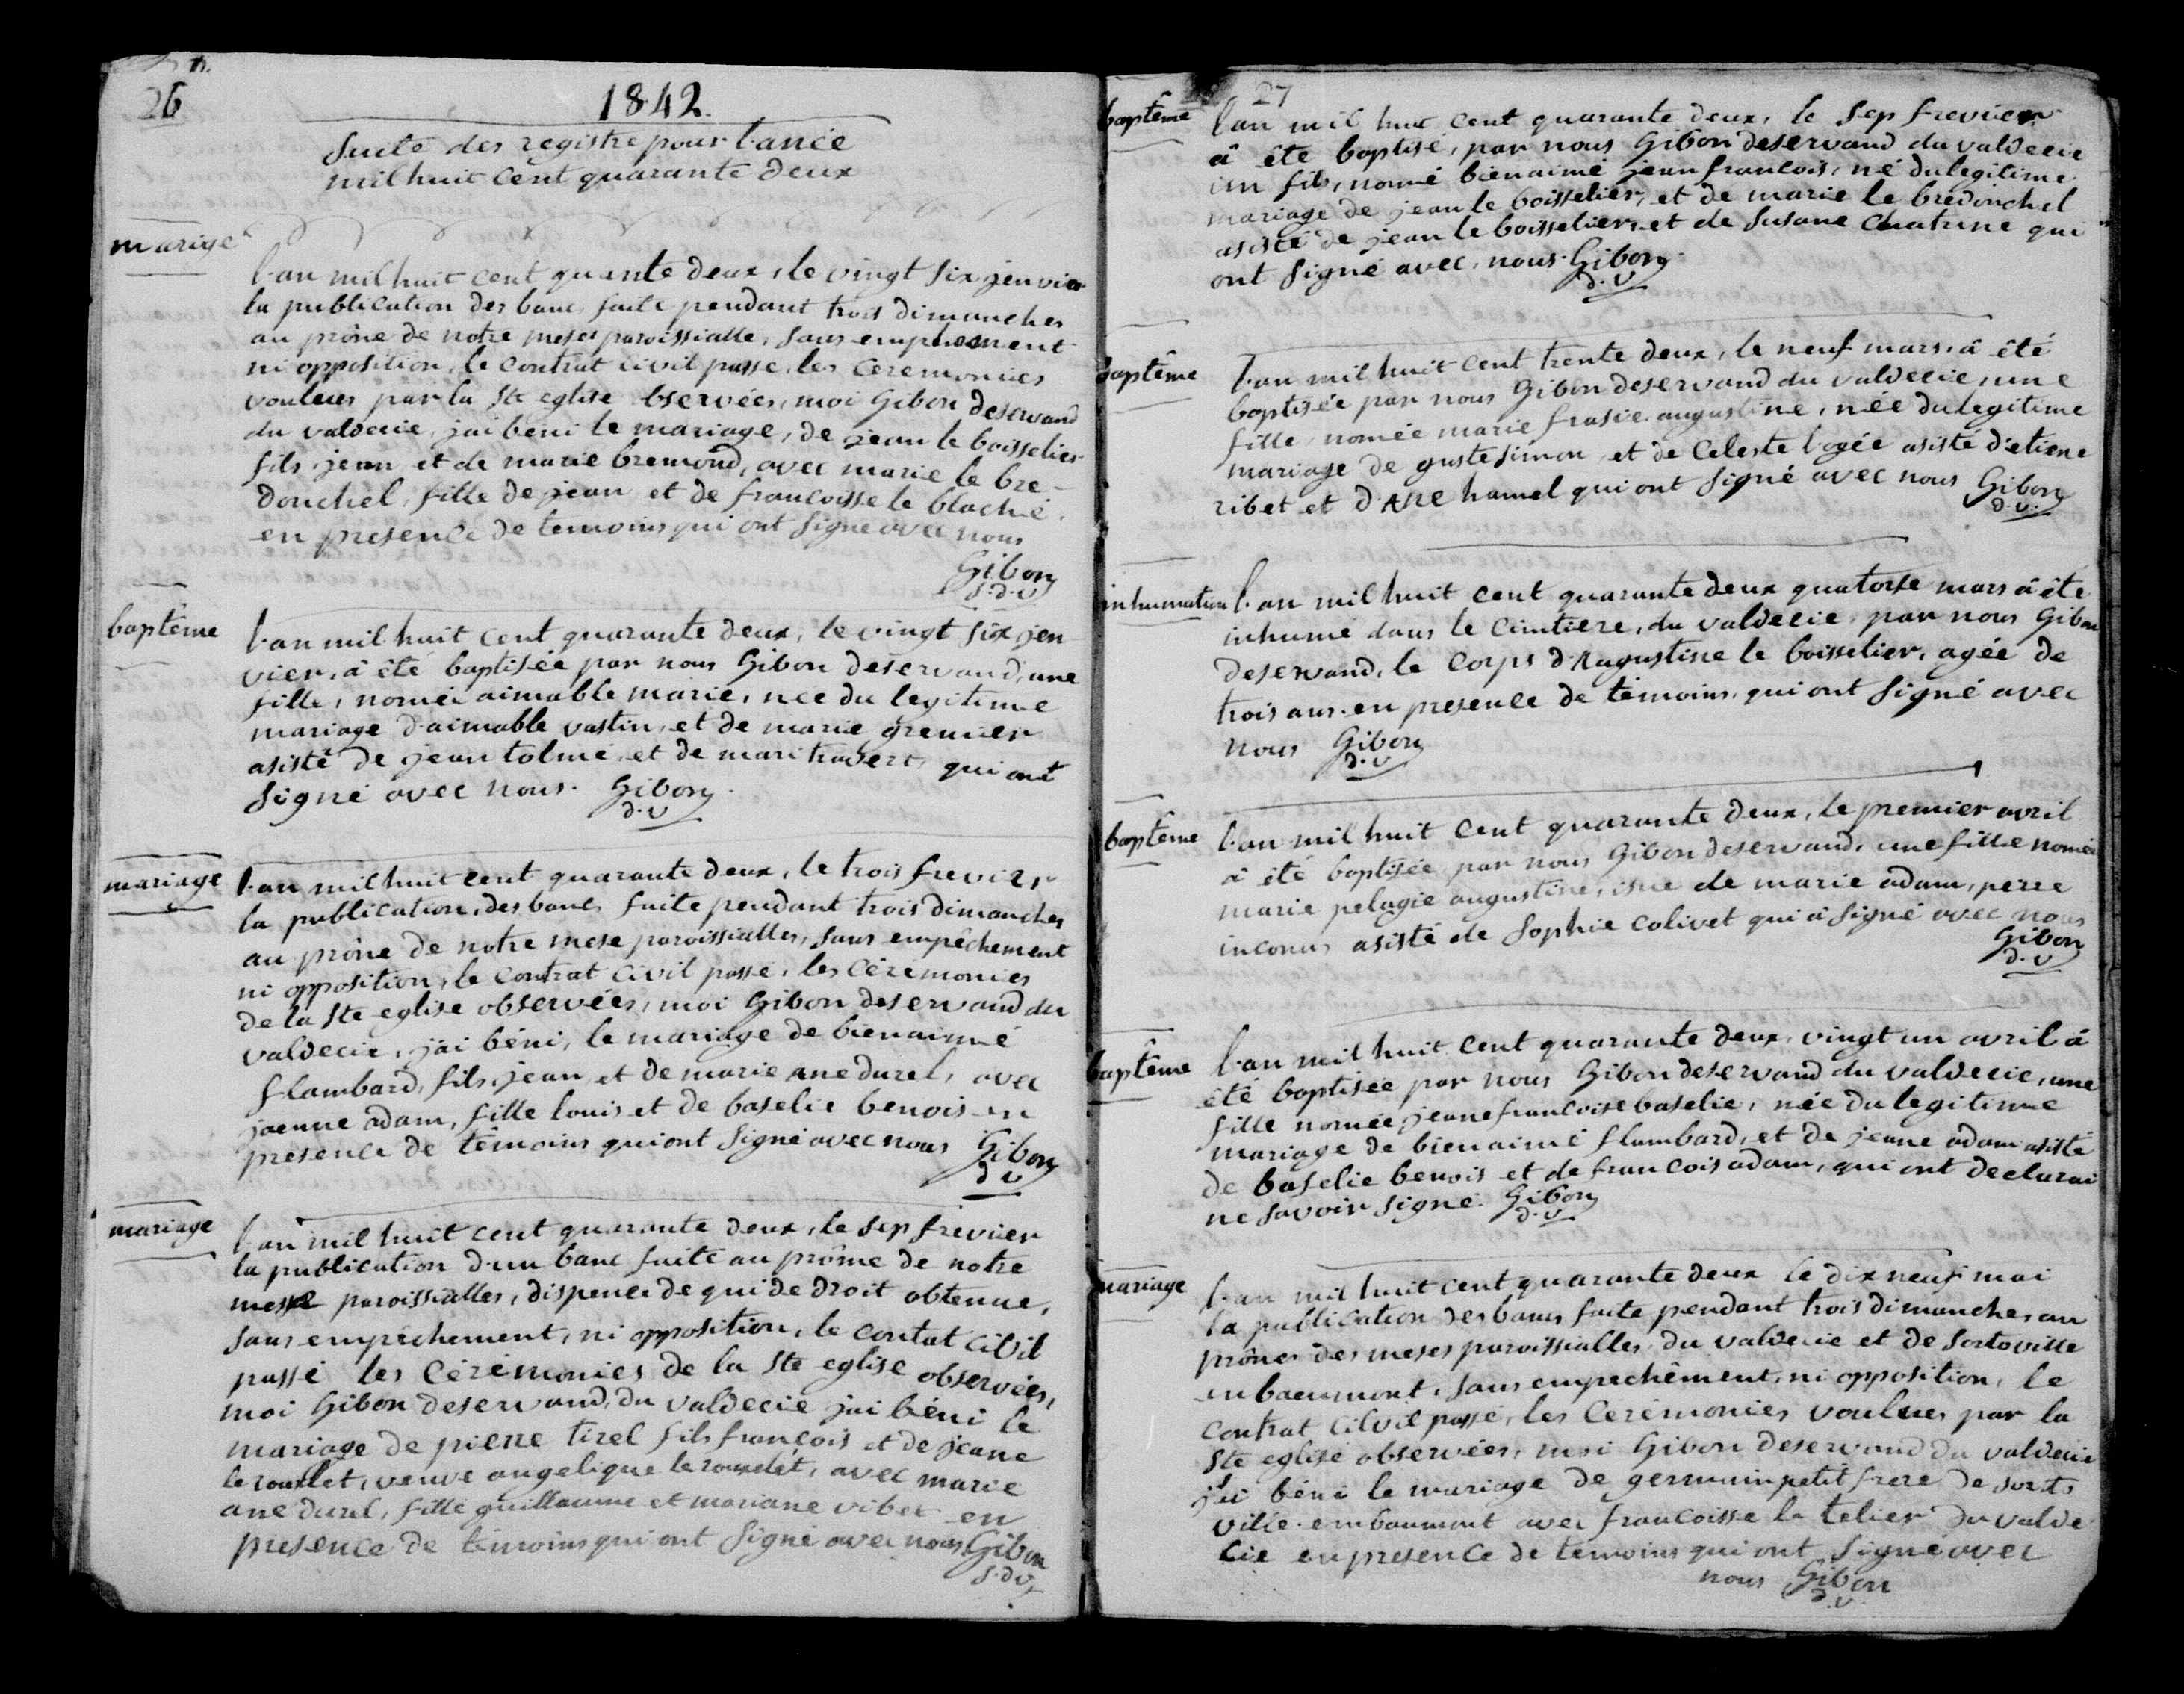 26
1842.
Suite des registre pour l'anée
mil huit cent quarante deux
marige
l'an mil huit cent quante deux, le vingt six jenvier
la publication des banc faite pendant trois dimanches
au prône de notre mese paroissialle, sans
ni opposition, le contrat civil passe, les ceremonies
voulues par la Ste eglise bservées, moi Gibon deservand
du valdecie, jai beni le mariage, de jean le boisselier
fils jean et de marie bremond, avec marie le bre-
donchel, fille de jean et de francoisse le blachié.
en presence de temoins qui ont signe avec nous
Gibon
S.d.v
baptême
l'an mil huit cent quarante deux, le vingt six jen
vier, â été baptisée par nous Gibon deservand, une
fille, nomée aimable marie, nee du legitime
mariage d'aimable vastin, et de marie grenier
asisté de jean tolmé, et de mari travert, qui ont
signé avec nous. Gibon
d.v
mariage
l'an mil huit cent quarante deux, le trois frevier
la publication, des banc, faite pendant trois dimanches
au prône de notre mese paroissialles, sans empêchement
ni opposition, le contrat civil passé, les cérémonies
de la Ste eglise observées, moi Gibon deservand du
valdecie, jai béni, le mariage de bienaimé
flambard, fils, jean, et de marie ane durel, avec
jaenne adam, fille louis et de baselie benois en
présence de témoins qui ont signé avec nous Gibon
d v
mariage
l'an mil huit cent quarante deux, le sep frevier
la publication d'un banc faite au prôme de notre
messe paroissialles, dispence de qui de droit obtenue,
sans empêchement, ni opposition, le contat civil
passé les cérémonies de la Ste eglise observées,
moi Gibon deservand, du valdecie jai béni le
mariage de pierre tirel fils françois et de jeane
le rouxlet, veuve angelique le rouxelet, avec marie
ane durel, fille guillaume et mariane vibet en
presence de témoins qui ont signé avec nous Gibon
S.d v
27
baptême
l'an mil huit cent quarante deux, le sep frevier
â été baptisé, par nous Gibon deservand du valdecie
un fils, nomé bienaimé jean francois, né du legitime
mariage de jean le boisselier, et de marie le bredonchel
asisté de jean le boisselier, et de susane Chatrine qui
ont signé avec, nous. Gibon
d.v
baptême
l'an mil huit cent trente deux, le neuf mars, â été
baptisée par nous Gibon deservand du valdecie, une
fille, nomée marie frasie augustine, née du legitime
mariage de guste simon et de Celeste l'ogée asisté d'etiene
ribet et d'Ane hamel qui ont signé avec nous Gibon
d.v.
inhumation
l'an mil huit cent quarante deux quatorse mars â été
inhumé dans le cimtiere, du valdecie, par nous Gibon
deservand, le corps d'Augustine le boisselier, agée de
trois ans. en presence de témoins, qui ont signé avec
nous Gibon
d.v
baptême
l'an mil huit cent quarante deux, le premier avril
â été baptisée par nous Gibon deservand, une fille nomée
marie pelagie augustine, isue de marie adam, perre
inconus asisté de Sophie colivet qui â signé avec nous
Gibon
d.v
baptême
l'an mil huit cent quarante deux, vingt un avril â
été baptisée par nous Gibon deservand du valdecie, une
fille nomée jeane francoise baselie, née du legitime
mariage de bienaimé flambard, et de jeane adam asisté
de baselie benois et de francois adam, qui ont declarai
ne savoir signé. Gibon
d.v
mariage
l'an mil huit cent quarante deux le dix neuf mai
la publication des bancs faite pendant trois dimanches au
prônes des meses paroissialles du valdecie et de sortoville
en baeumont, sans empechêment, ni opposition, le
contrat cilvil passé, les cerémonies voulues par la
Ste eglise observées, moi Gibon deservand du valdecie
j'ai béni le mariage de germain petit frere de sorto
ville en baumont avec francoisse le telier du valde
cie en presence de temoins qui ont signé avec
nous Gibon
d.v